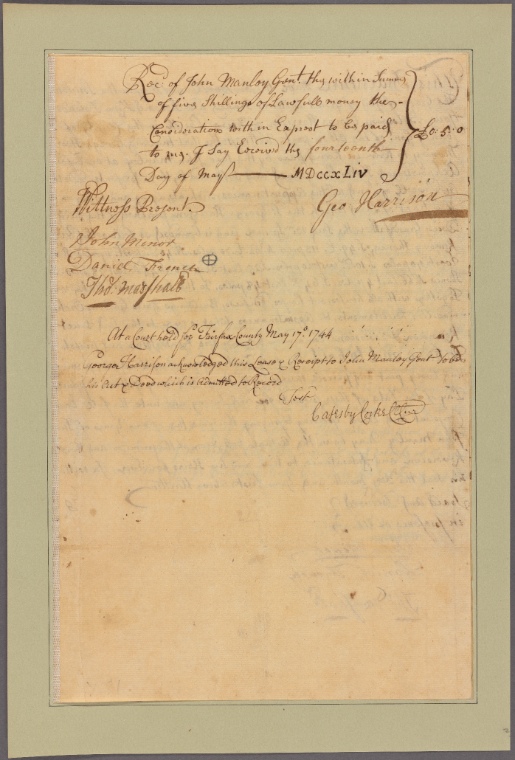 Rec.d of John Manley Gent. the within Summ
of five Shillings of Lawfull money the
Consideration within Exprest to be paid
to me. I Say Received the fourteenth
Day of May MDCCXLIV
£0..5..0
Geo Harrison
Wittness Present
John Minor
Daniel French
Tho.s Marshall
At a Court held for Fairfax County May 17th 1744
George Harrison acknowledged this Lease & Receipt to John Manley Gent to be
his Act & Deed which is admitted to Record
Test
Catesby Cocke